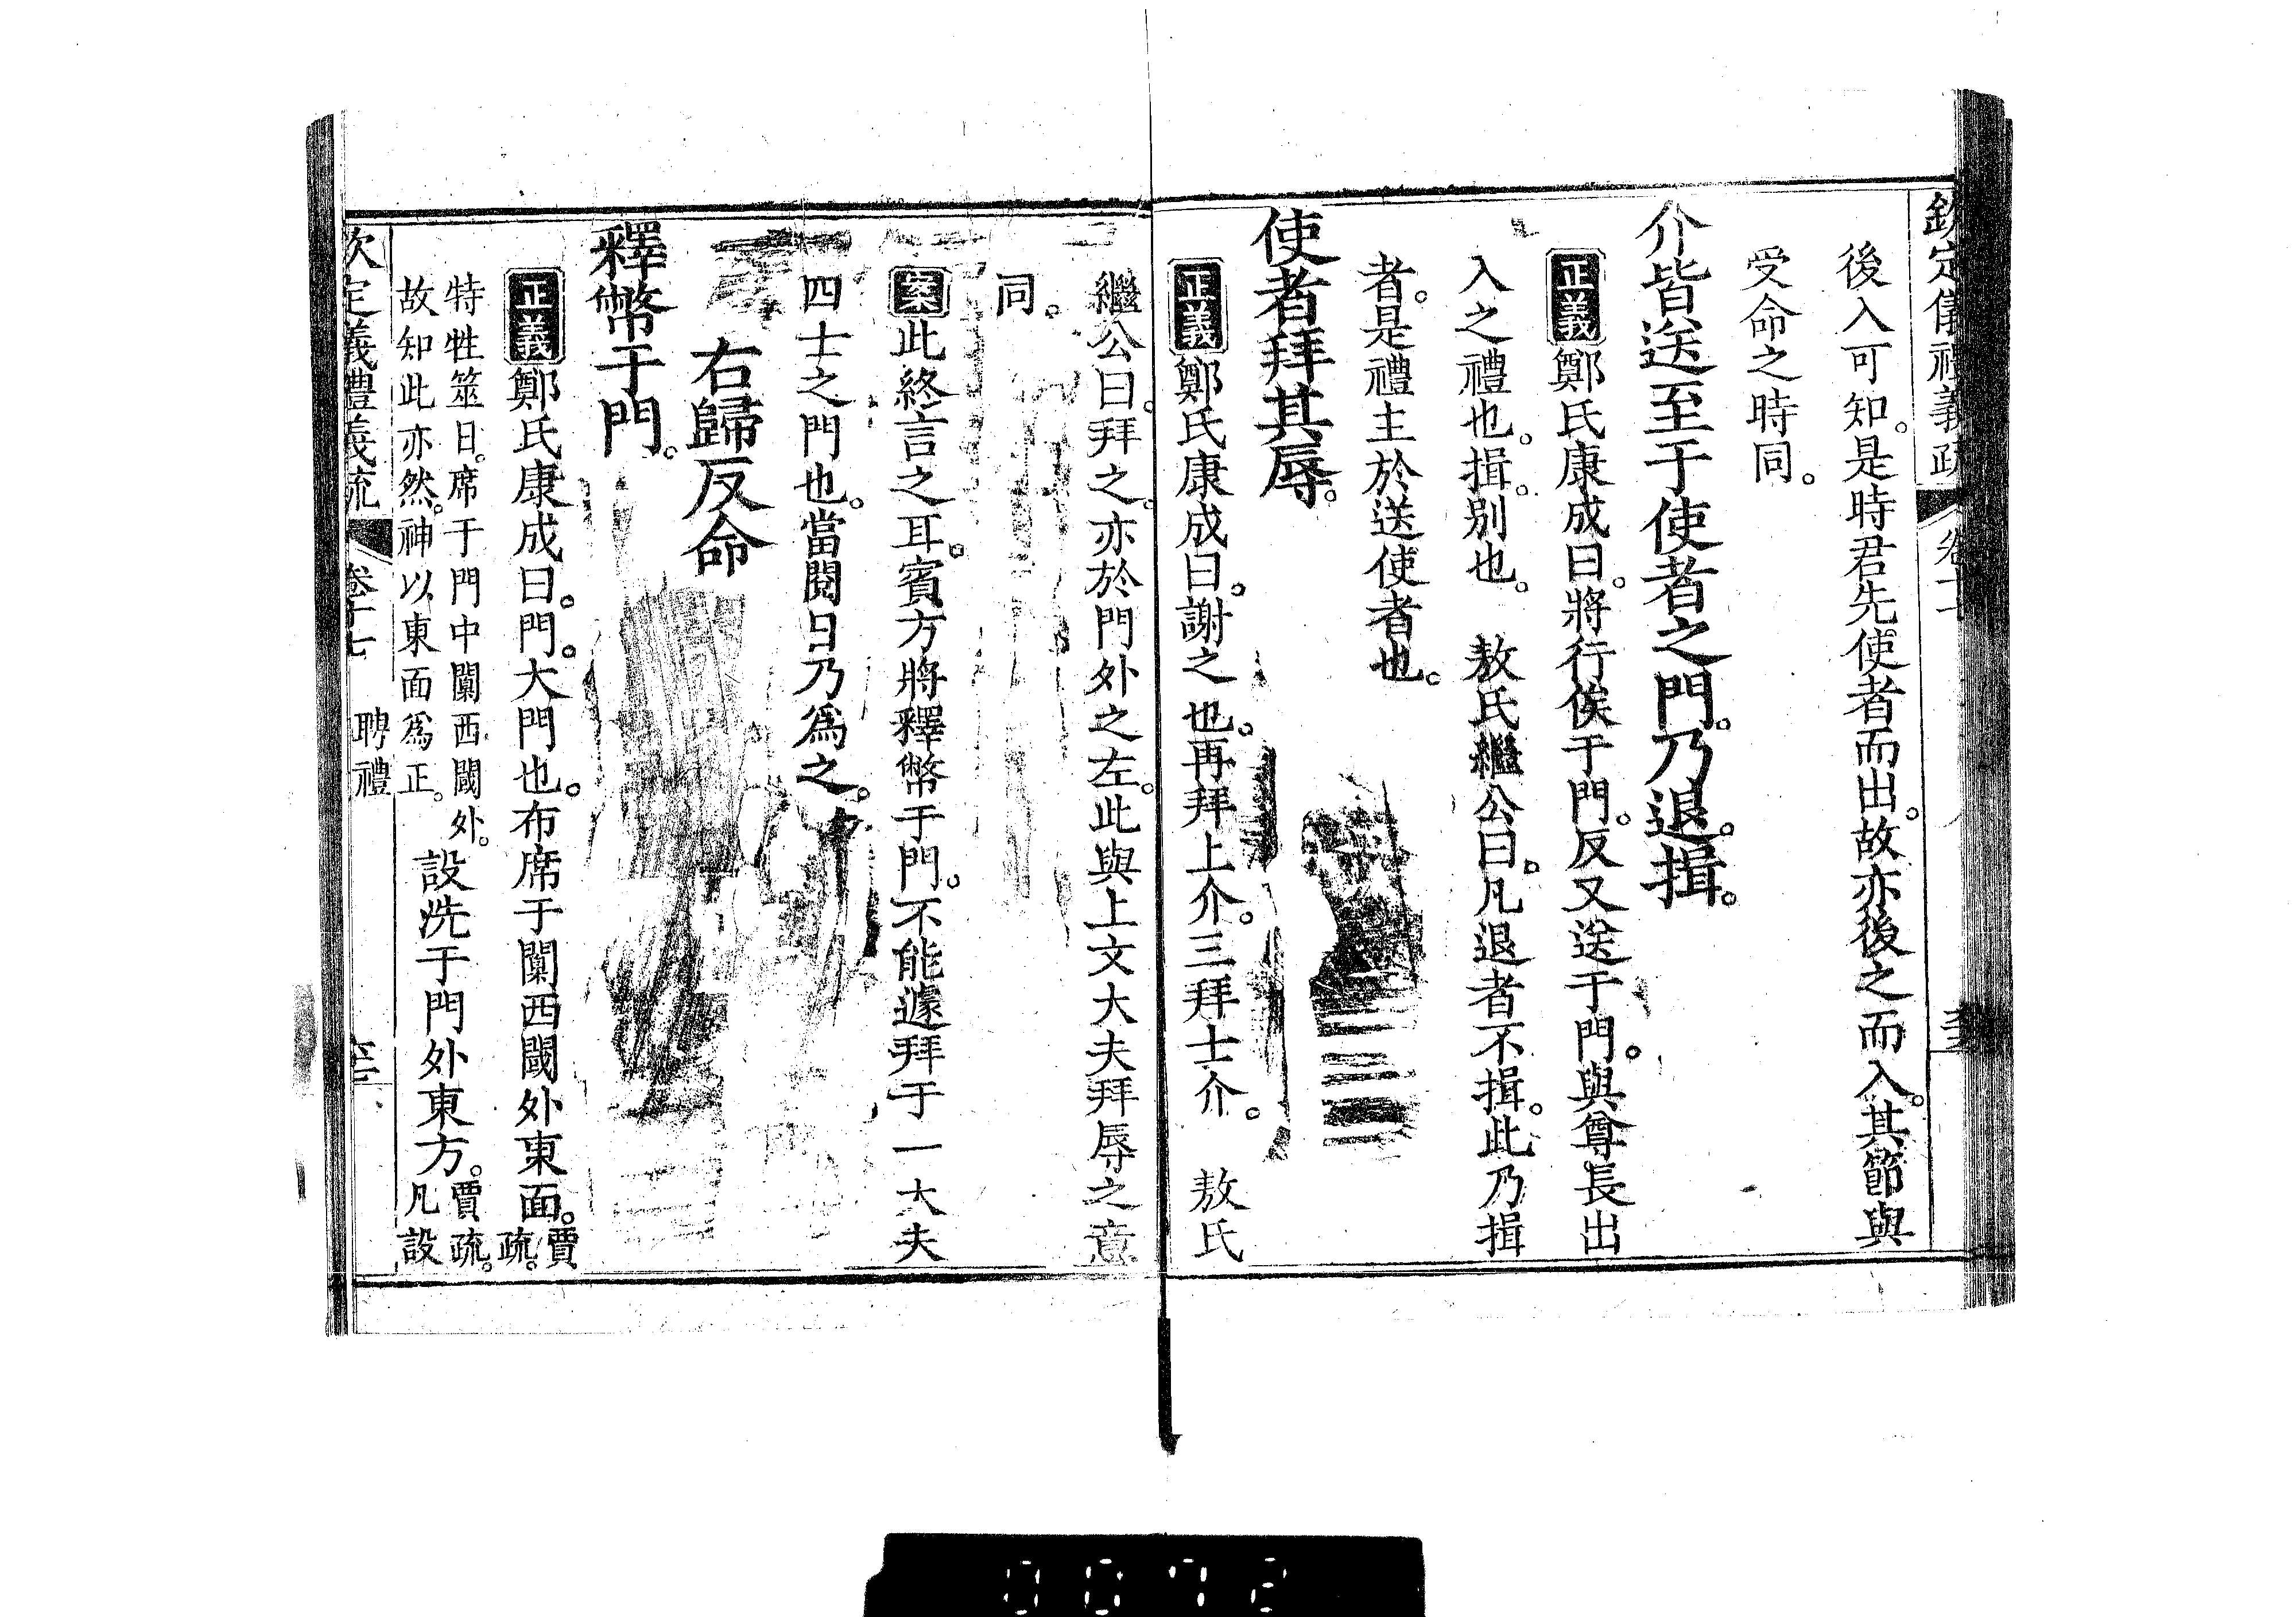 欽定儀禮義疏 卷十
後入可知。是時君先使者而出。故亦後之而入。其節與
受命之時同。
介皆送至于使者之門。乃退。揖。
正義鄭氏康成曰。將行俟于門。反又送于門。與尊長出
入之禮也。揖。別也。 敖氏繼公曰。凡退者不揖。此乃揖
者。是禮主於送使者也。
使者拜其辱。
正義鄭氏康成曰。謝之也。再拜上介。三拜士介。 敖氏
繼公曰。拜之。亦於門外之左。此與上文大夫拜辱之意
同。
案此終言之耳。賓方將釋幣于門。不能遽拜于一大夫
四士之門也。當閱日乃為之。
右歸反命
釋幣于門。
正義鄭氏康成曰。門。大門也。布席于闑西閾外東面。賈疏。
特牲筮日。席于門中闑西閾外。
故知此亦然。神以東面為正。
設洗于門外東方。賈疏。
凡設
欽定儀禮義疏 卷十七 聘禮